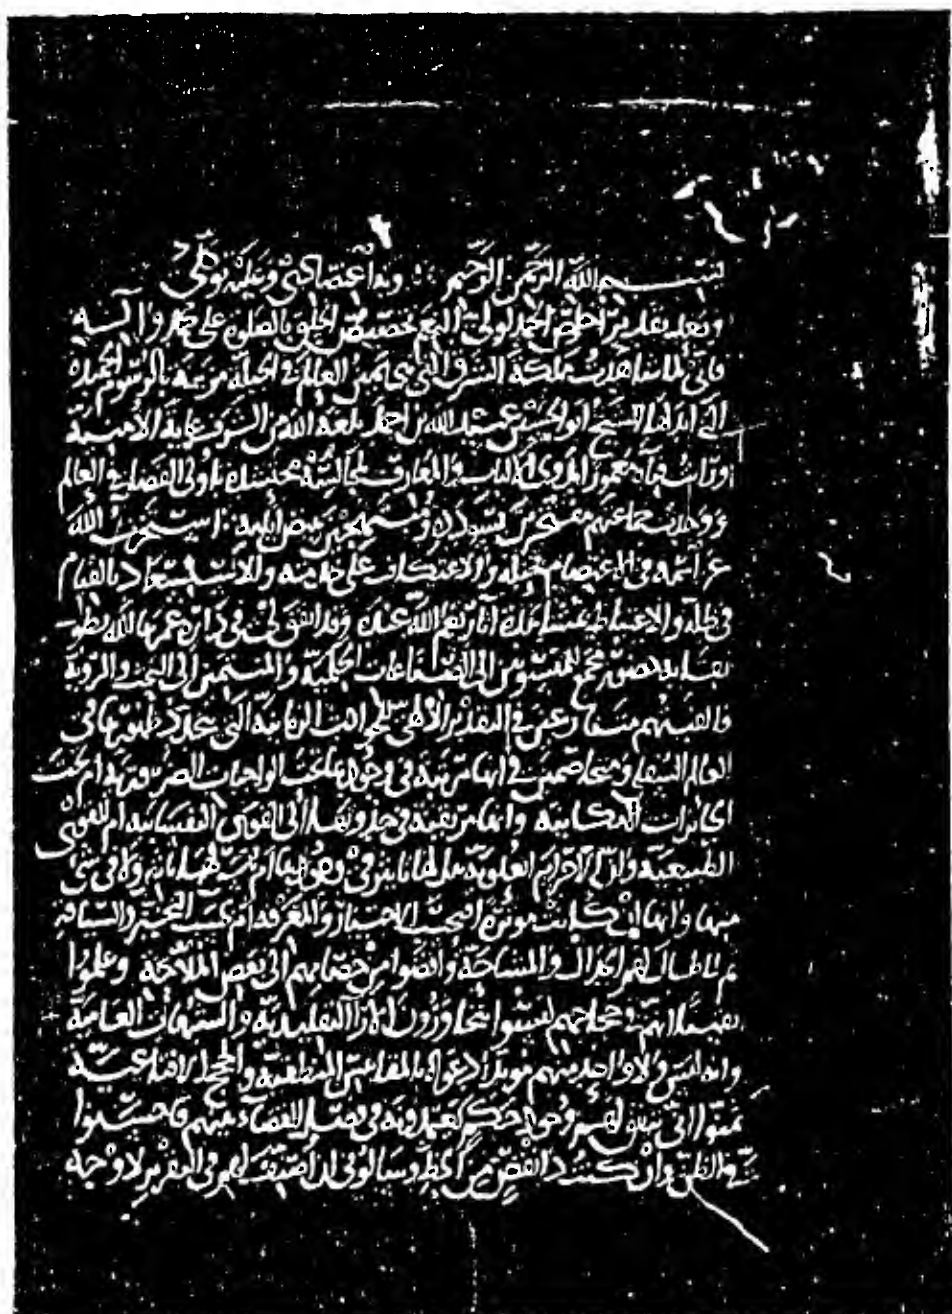 بسم الله الرحمن الرحيم وبه اعتصامي وعليه توكلي
وبعد تقديم اخلص الحمد لولي النعم وتخصيص الخلق بالصلوة على محمد وآله
فاني لما شاهدت ملكة الشرف التي بها يتميز العالم في الجبلة مرتبة بالرسوم الحميدة
التي ابداها الشيخ ابو الحسين عبيد الله بن احمد بلغه الله من الشرف غاية الأمنية
ورايت معمورا بذوي الالباب والمعارف مجالسه باولي الفضل في العالم
ووجدت جماعتهم استخرت الله
عز اسمه في الاعتصام بحبله والاعتكاف على خدمته والاستسعاد بالقيام
في ظله والاغتباط بمشاهدة آثار نعم الله عنده وقد اتفق لي في داره عمرها الله بطول
بقائه حضور مجمع للمنتسبين الى الصناعات الحكمية والمنتمين الى البحث والروية
فالفيتهم متنازعين في التقدير الالهي للحوادث الزمانية التي يتجدد ظهورها في
العالم السفلي ومتخاصمين في انها مرتبة في وجودها تحت الواجبات الضرورية ام تحت
الجايزات الامكانية وانها مرتقية في حدوثها الى القوى النفسانية ام القوى
الطبيعية وان الاجرام العلوية هل لها تاثير في وقوعها ام ليس لها تاثير ولا في شي
منها وانها ان كانت مؤثرة افبحسب الاختيار والمعرفة ام بحسب التسخير والسياقة
ثم لما طال لهم الجدال والمشاحة وافضوا من خصامهم الى بعض الملاحة وعلموا
يقينا انهم في محاجتهم ليسوا يتجاوزون الآراء التقليدية والشبهات العامية
وانه ليس ولا واحد منهم مؤيدا دعواه بالمقاييس المنطقية والحجج الاقناعية
تمنوا ان يتفق لهم وجود حكم يعتمدونه في فصل القضاء بينهم فاحسنوا
بي الظن وان كنت دونهم وسالوني ان اصنف لهم في التقدير لاوجه